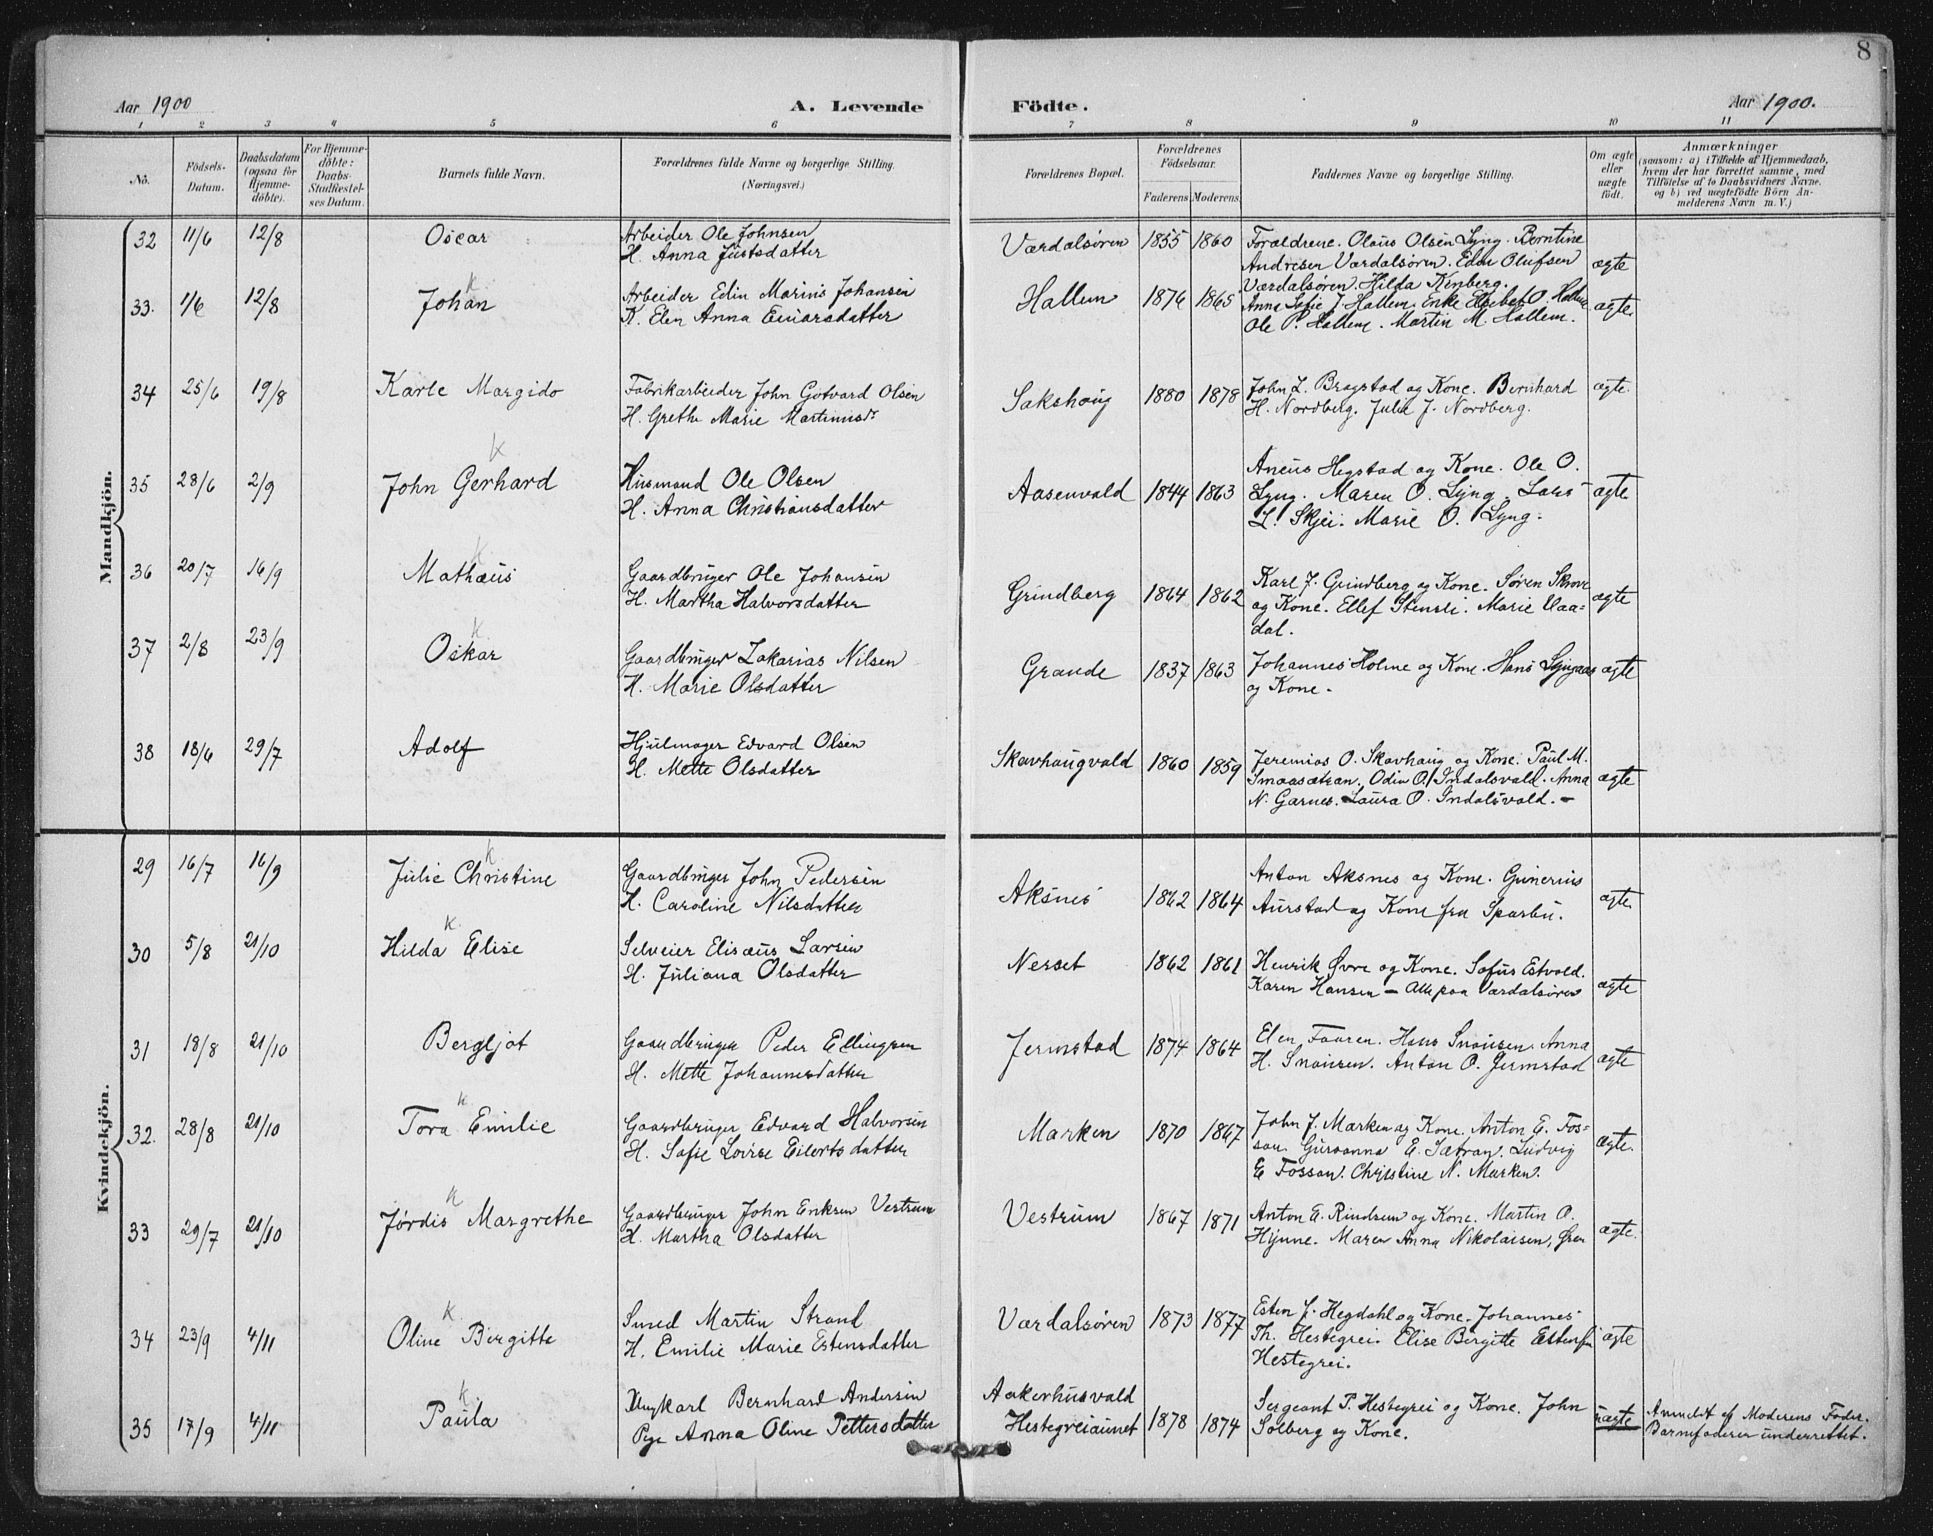 8
Aar 1900
A. Levende
Födte.
Aar 1900.
1 2 3 4 5 6 7 8 9 10 11
No.
Födsels-
Datum.
Daabsdatum
(ogsaa for
Hjemme-
döbte).
For Hjemme-
döbte:
Daabs-
Stadfæstel-
ses Datum.
Barnets fulde Navn.
Forældrenes fulde Navne og borgerlige Stilling.
(Næringsvei.)
Forældrenes Bopæl.
Forældrenes
Födselsaar.
Faderens
Moderens
Faddernes Navne og borgerlige Stilling.
Om ægte
eller
uægte
födt.
Anmærkninger
(saasom: a) i Tilfælde af Hjemmedaab,
hvem der har forrettet samme, med
Tilföielse af to Daabsvidners Navne.
og b) ved uægtefödte Börn An-
melderens Navn m. V.)
Mandkjön.
32 11/6 12/8 Oscar
Arbeider Ole Johnsen
H. Anna Justsdatter
Værdalsøren 1855 1860
Forældrene. Olaus Olsen Lyng. Berntine
Andresen Værdalsøren. Edm Olufsen
Værdalsøren. Hilda Kinberg.
ægte
33. 1/6 12/8 Johan
Arbeider Edin Marius Johansen
K. Elen Anna Einarsdatter
Hallem 1876 1865
Anna Sofie J. Hallem. Enke Elisabet O. Hallem
Ole P. Hallem. Martin M. Hallem.
ægte.
34 25/6 19/8 Karle Margido
Fabrikarbeider John Gotvard Olsen
H. Grethe Marie Martinusdr
Sakshaug 1880 1878
John L. Bragstad og Kone. Bernhard
H. Nordberg. Julia J. Nordberg.
ægte.
35 28/6 2/9 John Gerhard
Husmand Ole Olsen
H. Anna Christiansdatter
Aasenvald 1844 1863
Aneus Hegstad og Kone. Ole O.
Lyng. Maren O. Lyng. Lars
L. Skjei. Marie O. Lyng.
ægte
36 20/7 16/9 Mathæus
Gaardbruger Ole Johansen
H. Martha Halvorsdatter
Grindberg 1864 1862
Karl J. Grindberg og Kone. Søren Skrove
og Kone. Ellef Stensli. Marie Aaa=
dal.
ægte
37 2/8 23/9 Oskar
Gaardbruger Zakarias Nilsen
H. Marie Olsdatter
Grande 1837 1863
Johannes Holme og Kone. Hans Lyngaas
og Kone.
ægte
38 18/6 29/7 Adolf
Hjulmager Edvard Olsen
H. Mette Olsdatter
Skavhaugvald 1860 1859
Jeremias O. Skavhaug og Kone. Paul M.
Smaasætran. Odin O. Indalsvald. Anna
N. Garnes. Laura O. Indalsvald.
ægte
Kvindekjön.
29 16/7 16/9 Julie Christine
Gaardbruger John Pedersen
H. Caroline Nilsdatter
Aksnes 1862 1864
Anton Aksnes og Kone. Gunerius
Aurstad og Kone fra Sparbu.
ægte.
30 5/8 21/10 Hilda Elise
Selveier Elisæus Larsen
H. Juliana Olsdatter
Nesset 1862 1861
Henrik Øvre og Kone. Sofus Estvold.
Karen Hansen – Alle paa Værdalsøren
ægte
31 18/8 21/10 Bergljot
Gaardbruger Peder Ellingsen
H. Mette Johannesdatter
Jermstad 1874 1864
Elen Faaren. Hans Snausen. Anna
H. Snausen. Anton O. Jermstad
ægte
32. 28/8 21/10 Tora Emilie
Gaardbruger Edvard Halvorsen
H. Sofie Lovise Eilertsdatter
Marken 1870 1867
John J. Marken og Kone. Anton E. Fos=
san. Guroanna E. Sætran. Ludvig
E Fossan. Christine N. Marken.
ægte.
33 29/7 21/10 Jørdis Margrethe
Gaardbruger John Eriksen Vestrum
H. Martha Olsdatter
Vestrum 1867 1871
Anton E. Rindsem og Kone. Martin O.
Hynne. Maren Anna Nikolaisen, Øren
ægte.
34 23/9 4/11 Oline Birgitte
Smed Martin Strand
H. Emilie Marie Estensdatter
Værdalsøren 1873 1877
Esten J. Hegdahl og Kone. Johannes
Th. Hestegrei. Elise Bergitte
Hestegrei.
ægte
35 17/9 4/11 Paula
Ungkarl Bernhard Andersen
Pige Anna Oline Pettersdatter
Aakerhusvald
Hestegreiaunet 1878 1874
Sergeant P. Hestegrei og Kone. John
Solberg og Kone.
uægte
Anmeldt af Moderens Fader.
Barnefaderen underrettet.